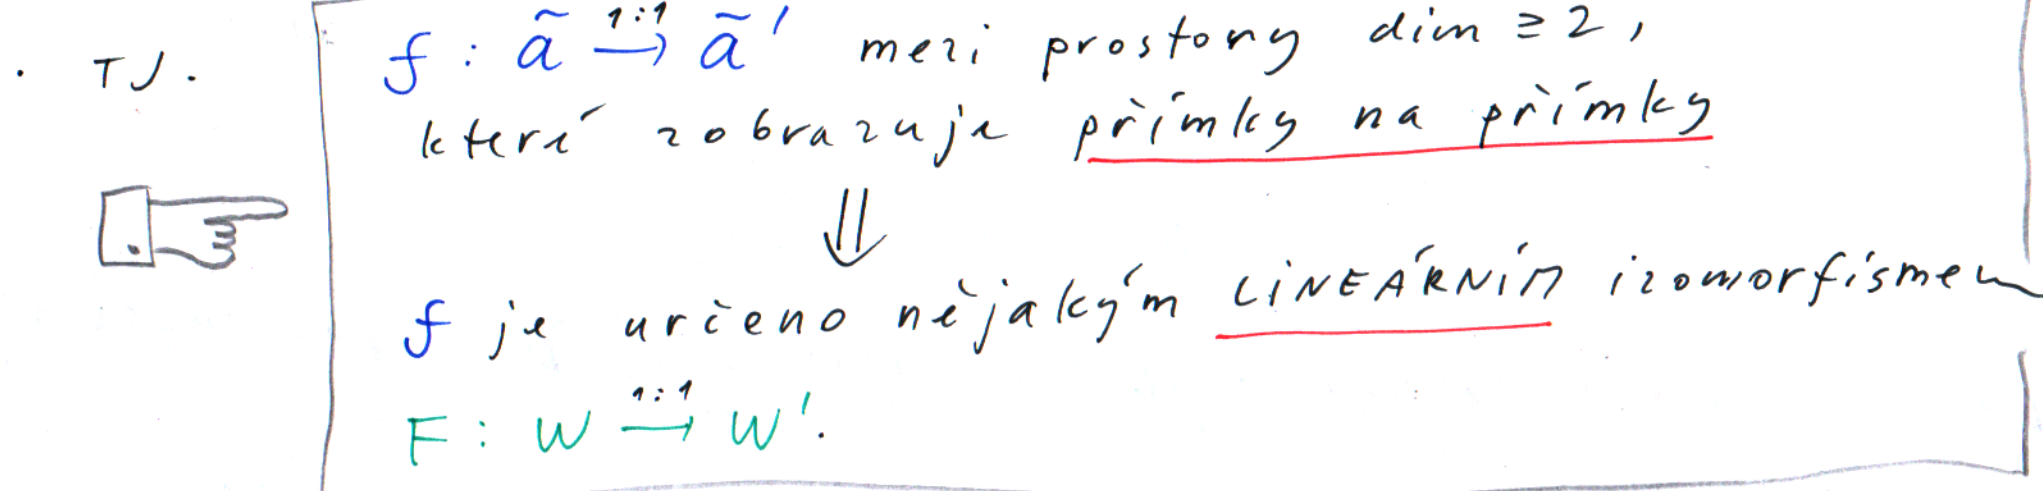 · TJ. f : ã →^{1:1} ã' mezi prostory dim ≥ 2,
které zobrazuje přímky na přímky
⇓
f je určeno nějakým LINEÁRNÍM izomorfismem
F : W →^{1:1} W'.